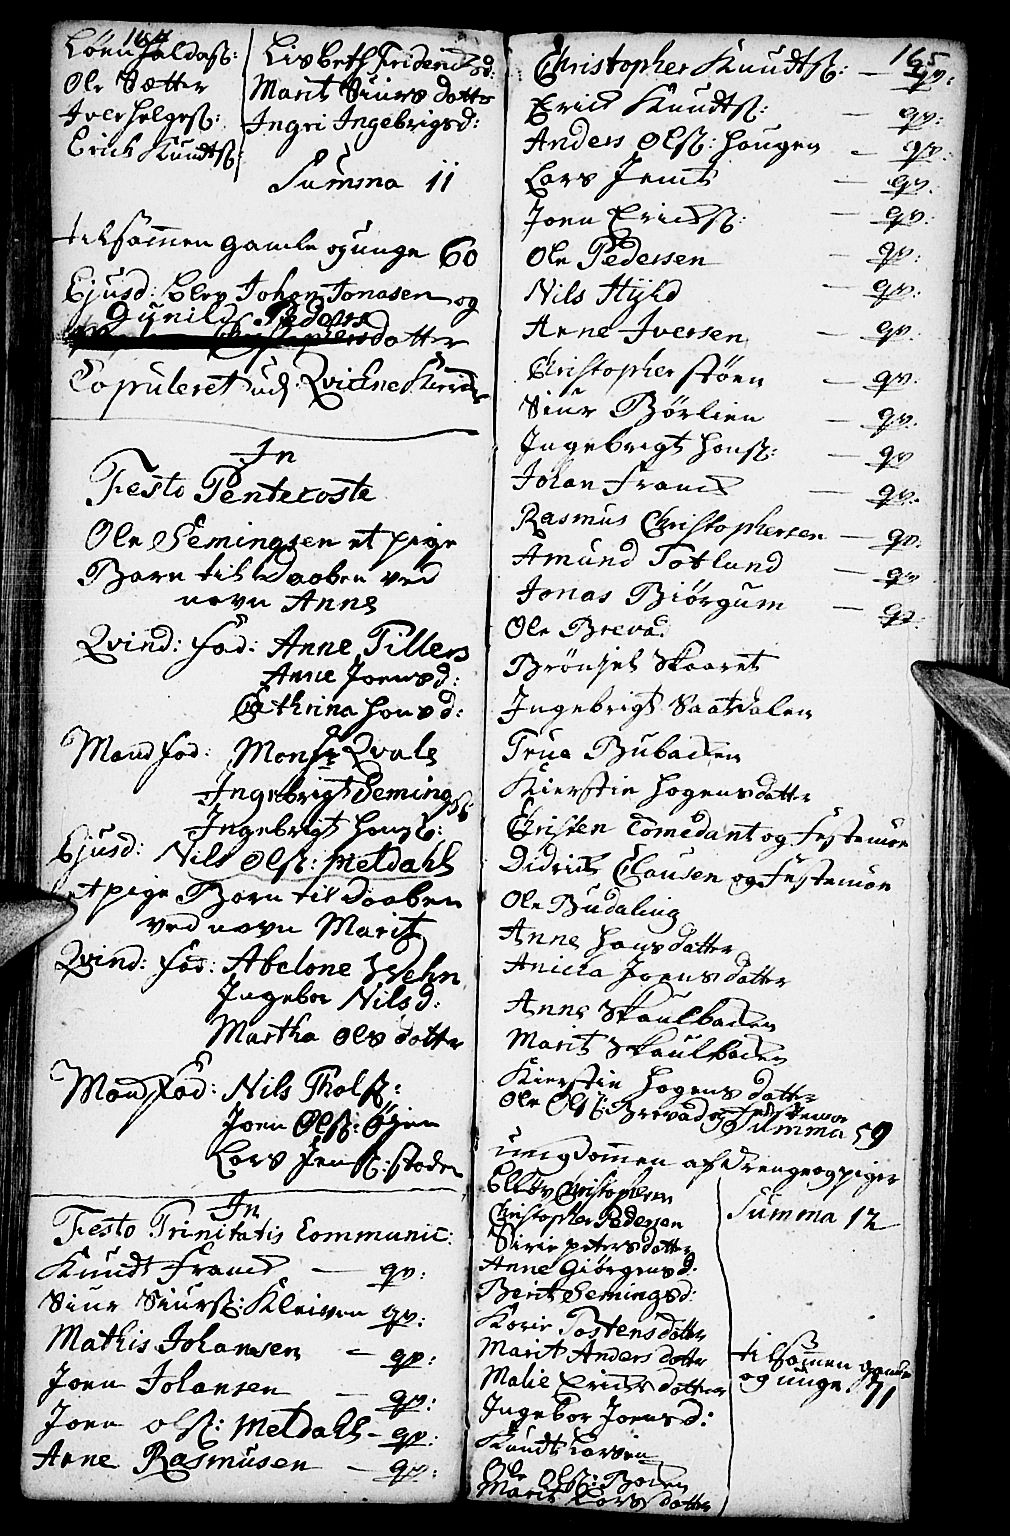 164
Löen Haldos:
Ole Sætter
Iver Helges:
Erich Knudts:
Lisbeth Fridericksd:
Marit Siurs datter
Ingri Ingebrigsd:
Summa 11
tilsamen gamle og unge 60
Ejusd: blev Johan Jonasen og
Gunild Peders
datter
Copuleret udj Qvichne Kircke
In
Festo Pentecoste
Ole Semingsen et pige
Barn til daaben ved
navn Anne
Qvind: fad: Anne Tillers
Anne Joensd:
Cathrina Hansd:
Mand fad: Monsr Qvale
Ingebrigt Semings:
Ingebrigt Hans:
Ejusd: Nils Ols: Meldahls
et pige Barn til daaben
ved navn Marit
Qvind: fad: Abelone Wehn
Ingebor Nilsd:
Martha Ols datter
Mand fad: Nils Thols:
Joen Ols: Øjen
Lars Jens: støden
In
Festo Trinitatis Communic:
Knudt Frand — qv:
Siur Siurs: Kleiven qv:
Mathis Johansen — qv:
Joen Johansen — qv:
Joen Ols: Meldahls — qv:
Arne Rasmusen — qv:
165
Christopher Knudts: — qv:
Erich Knudts: — qv:
Anders Ols: Haugen — qv:
Lars Jemt — qv:
Joen Ericks: — qv:
Ole Pedersen — qv:
Nils Hijld — qv:
Arne Iversen — qv:
Christopher støen — qv:
Siur Børlien — qv:
Ingebrigt Hans: — qv
Johan Frand — qv:
Rasmus Christophersen — qv:
Amund Totlund — qv
Jonas Biørgum — qv:
Ole Brevad
Brönjel Skaaret
Ingebrigt Saatdalen
True Bubacken
Kierstin Hagensdatter
Christen Comedant og Festemøe
Didrich Clausen og Festemøe
Ole Budaling
Anne Hansdatter
Anicka Joensdatter
Anne Skaulbacken
Marit Skaulbacken
Kierstin Hagens datter
Ole Ols: Brevad og Festemøe
Summa 59
ungdomen af drenge og piger
Ellev Christophersen
Christopher Pedersen
Sirie petersdatter
Anne Giörgensd:
Berit Semingsd:
Karie Tostensdatter
Marit Andersdatter
Malie Erichsdatter
Ingebor Joensd:
Knudt Larsen
Ole Ols: Backen
Marit Larsdatter
Summa 12
tilsamen gamle
og unge 71